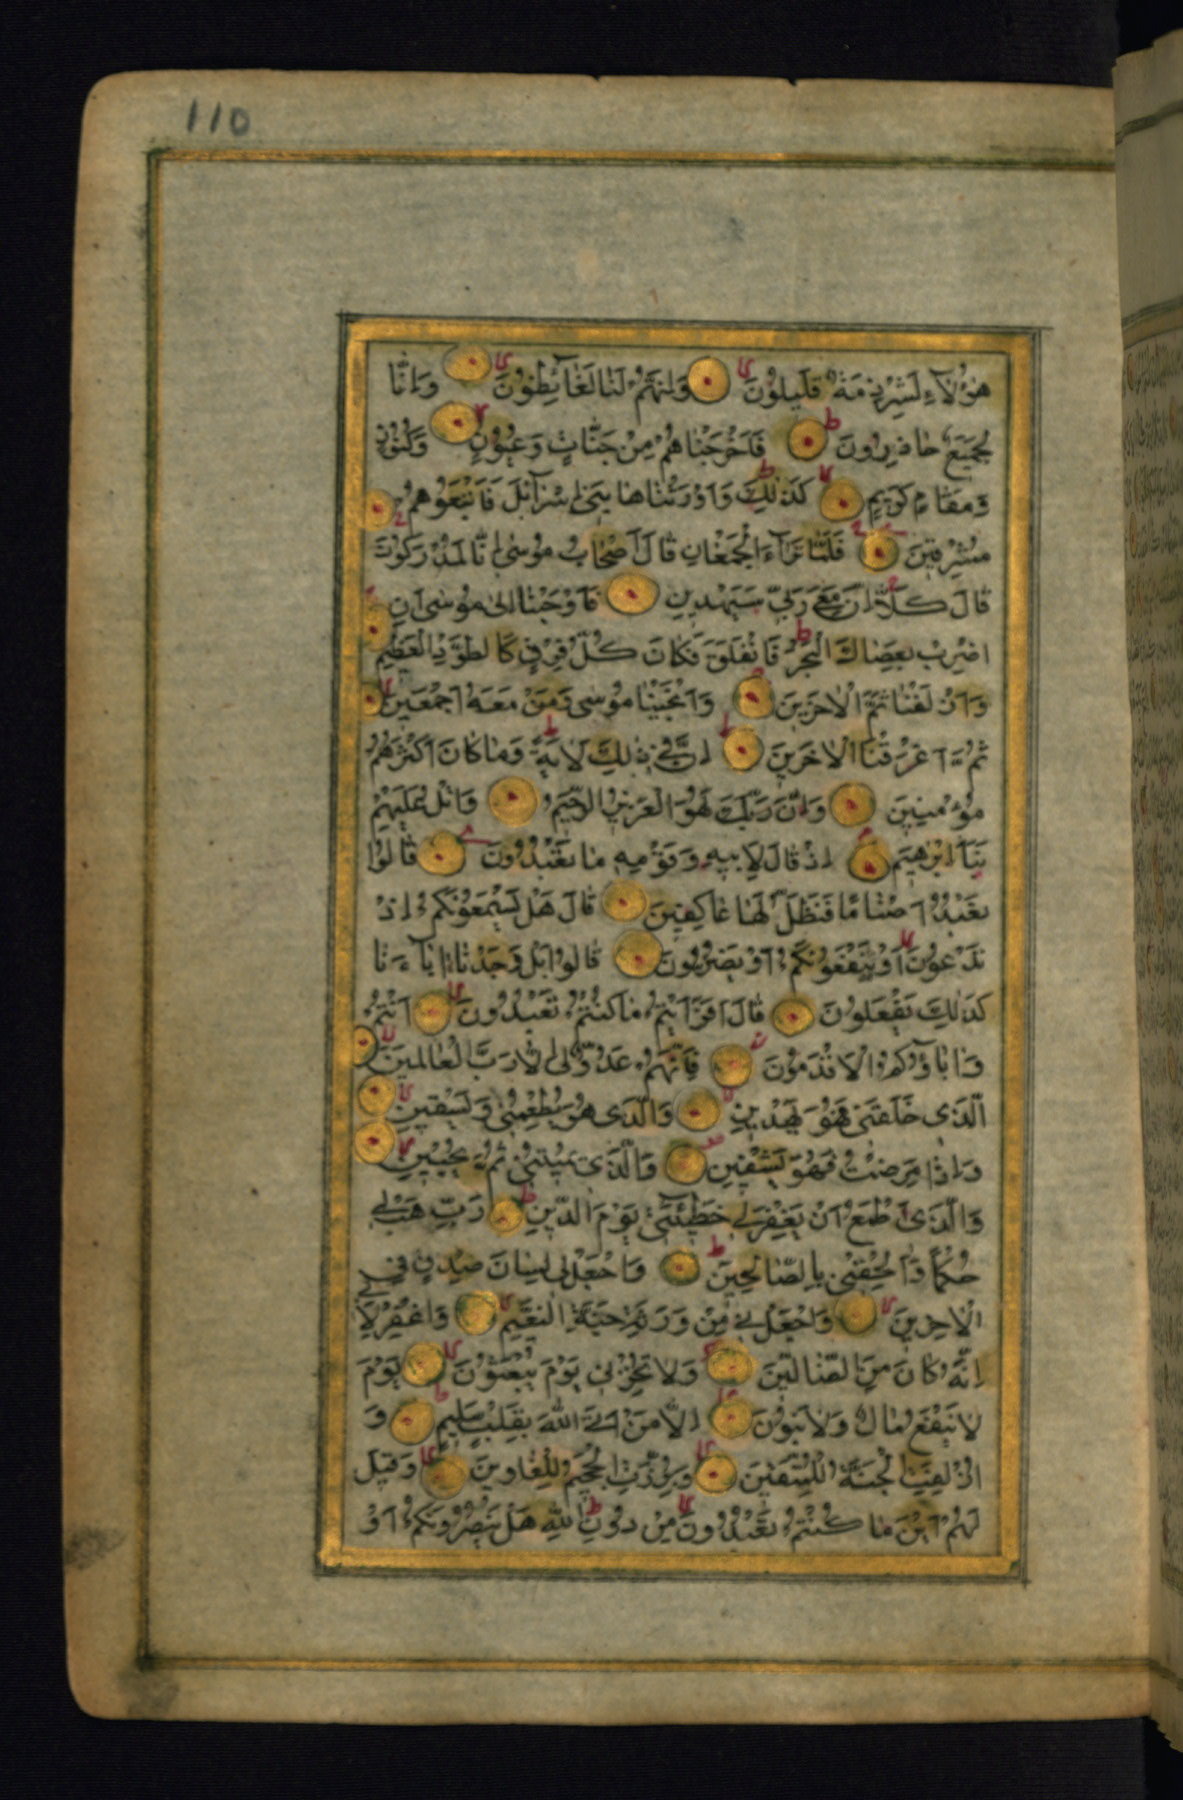 110
هٰؤُلَاءِ لَشِرْذِمَةٌ قَلِيلُونَ وَاِنَّهُمْ لَنَا لَغَائِظُونَ وَاِنَّا
لَجَمِيعٌ حَاذِرُونَ فَاَخْرَجْنَاهُمْ مِنْ جَنَّاتٍ وَعُيُونٍ وَكُنُوزٍ
وَمَقَامٍ كَرِيمٍ كَذٰلِكَ وَاَوْرَثْنَاهَا بَنِى اِسْرَآئِلَ فَاَتْبَعُوهُمْ
مُشْرِقِينَ فَلَمَّا تَرَآءَ الْجَمْعَانِ قَالَ اَصْحَابُ مُوسٰى اِنَّا لَمُدْرَكُونَ
قَالَ كَلَّا اِنَّ مَعِىَ رَبِّى سَيَهْدِينِ فَاَوْحَيْنَا اِلٰى مُوسٰى اَنِ
اضْرِبْ بِعَصَاكَ الْبَحْرَ فَانْفَلَقَ فَكَانَ كُلُّ فِرْقٍ كَالطَّوْدِ الْعَظِيمِ
وَاَزْلَفْنَا ثَمَّ الْاٰخَرِينَ وَاَنْجَيْنَا مُوسٰى وَمَنْ مَعَهُ اَجْمَعِينَ
ثُمَّ اَغْرَقْنَا الْاٰخَرِينَ اِنَّ فِى ذٰلِكَ لَاٰيَةً وَمَا كَانَ اَكْثَرُهُمْ
مُؤْمِنِينَ وَاِنَّ رَبَّكَ لَهُوَ الْعَزِيزُ الرَّحِيمُ وَاتْلُ عَلَيْهِمْ
نَبَاَ اِبْرٰهِيمَ اِذْ قَالَ لِاَبِيهِ وَقَوْمِهِ مَا تَعْبُدُونَ قَالُوا
نَعْبُدُ اَصْنَامًا فَنَظَلُّ لَهَا عَاكِفِينَ قَالَ هَلْ يَسْمَعُونَكُمْ اِذْ
تَدْعُونَ اَوْ يَنْفَعُونَكُمْ اَوْ يَضُرُّونَ قَالُوا بَلْ وَجَدْنَا اٰبَآءَنَا
كَذٰلِكَ يَفْعَلُونَ قَالَ اَفَرَاَيْتُمْ مَا كُنْتُمْ تَعْبُدُونَ اَنْتُمْ
وَاٰبَاؤُكُمُ الْاَقْدَمُونَ فَاِنَّهُمْ عَدُوٌّ لِى اِلَّا رَبَّ الْعَالَمِينَ
اَلَّذِى خَلَقَنِى فَهُوَ يَهْدِينِ وَالَّذِى هُوَ يُطْعِمُنِى وَيَسْقِينِ
وَاِذَا مَرِضْتُ فَهُوَ يَشْفِينِ وَالَّذِى يُمِيتُنِى ثُمَّ يُحْيِينِ
وَالَّذِى اَطْمَعُ اَنْ يَغْفِرَ لِى خَطِيئَتِى يَوْمَ الدِّينِ رَبِّ هَبْ لِى
حُكْمًا وَاَلْحِقْنِى بِالصَّالِحِينَ وَاجْعَلْ لِى لِسَانَ صِدْقٍ فِى
الْاٰخِرِينَ وَاجْعَلْنِى مِنْ وَرَثَةِ جَنَّةِ النَّعِيمِ وَاغْفِرْ لِاَبِى
اِنَّهُ كَانَ مِنَ الضَّالِّينَ وَلَا تُخْزِنِى يَوْمَ يُبْعَثُونَ يَوْمَ
لَا يَنْفَعُ مَالٌ وَلَا بَنُونَ اِلَّا مَنْ اَتَى اللّٰهَ بِقَلْبٍ سَلِيمٍ وَ
اُزْلِفَتِ الْجَنَّةُ لِلْمُتَّقِينَ وَبُرِّزَتِ الْجَحِيمُ لِلْغَاوِينَ وَقِيلَ
لَهُمْ اَيْنَ مَا كُنْتُمْ تَعْبُدُونَ مِنْ دُونِ اللّٰهِ هَلْ يَنْصُرُونَكُمْ اَوْ